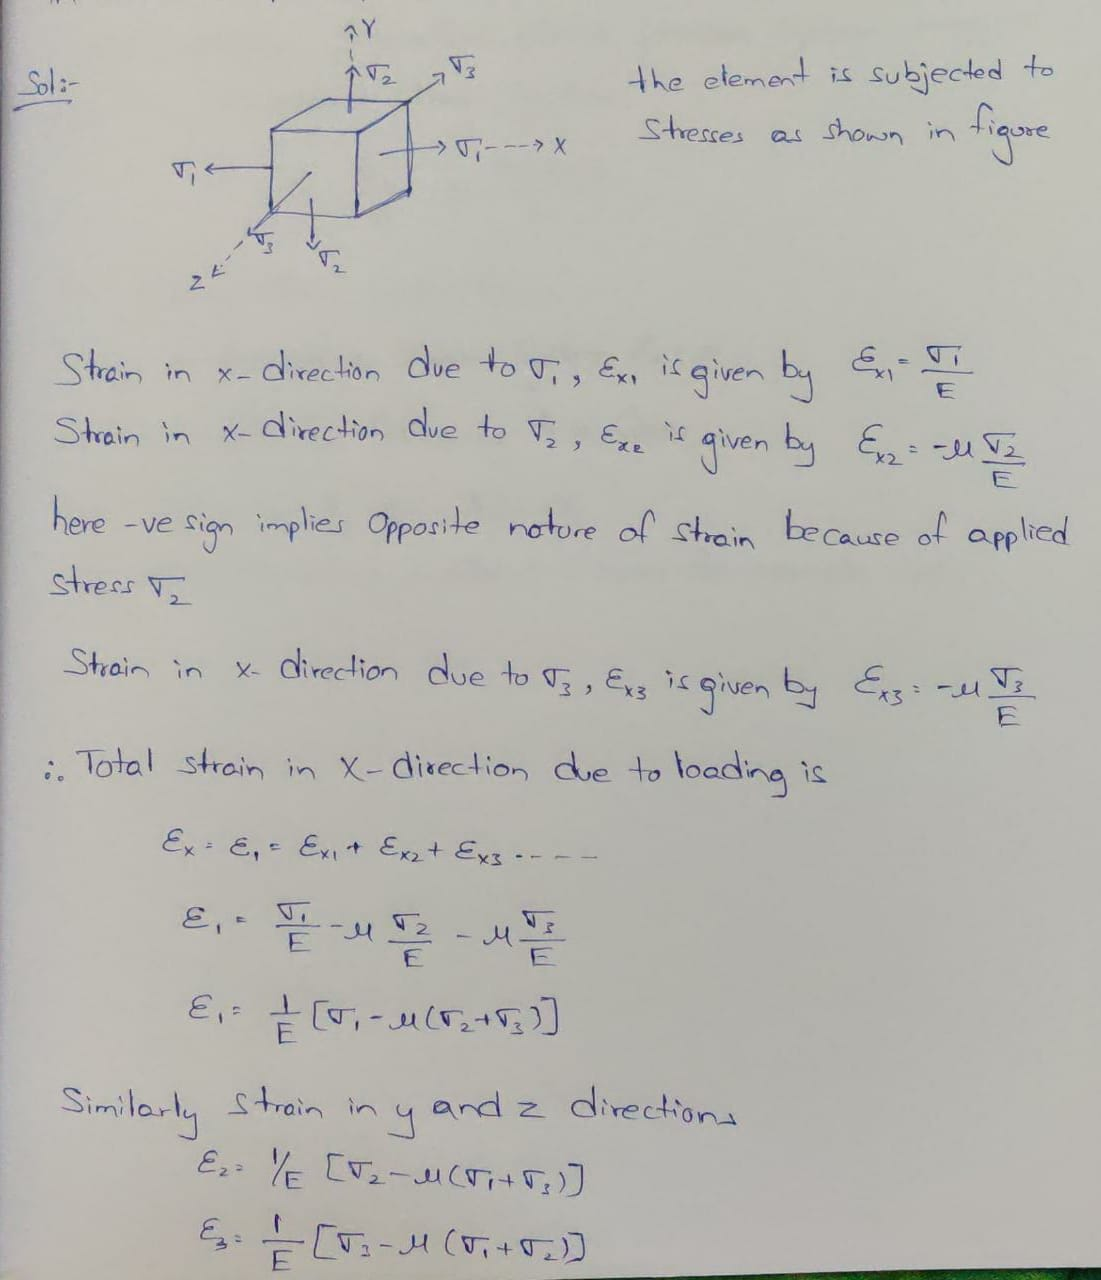 Y
σ₂
σ₃
Sol:-
the element is subjected to
stresses as shown in figure
σ₁ ---> X
σ₁
σ₃
σ₂
Z
Strain in x-direction due to σ₁, Ɛx₁ is given by Ɛx₁ = σ₁/E
Strain in x-direction due to σ₂, Ɛx₂ is given by Ɛx₂ = -μ σ₂/E
here -ve sign implies Opposite nature of strain because of applied
stress σ₂
Strain in x-direction due to σ₃, Ɛx₃ is given by Ɛx₃ = -μ σ₃/E
∴ Total strain in X-direction due to loading is
Ɛx = Ɛ₁ = Ɛx₁ + Ɛx₂ + Ɛx₃ ----
Ɛ₁ = σ₁/E - μ σ₂/E - μ σ₃/E
Ɛ₁ = 1/E [σ₁ - μ(σ₂+σ₃)]
Similarly strain in y and z directions
Ɛ₂ = 1/E [σ₂ - μ(σ₁+σ₃)]
Ɛ₃ = 1/E [σ₃ - μ (σ₁+σ₂)]